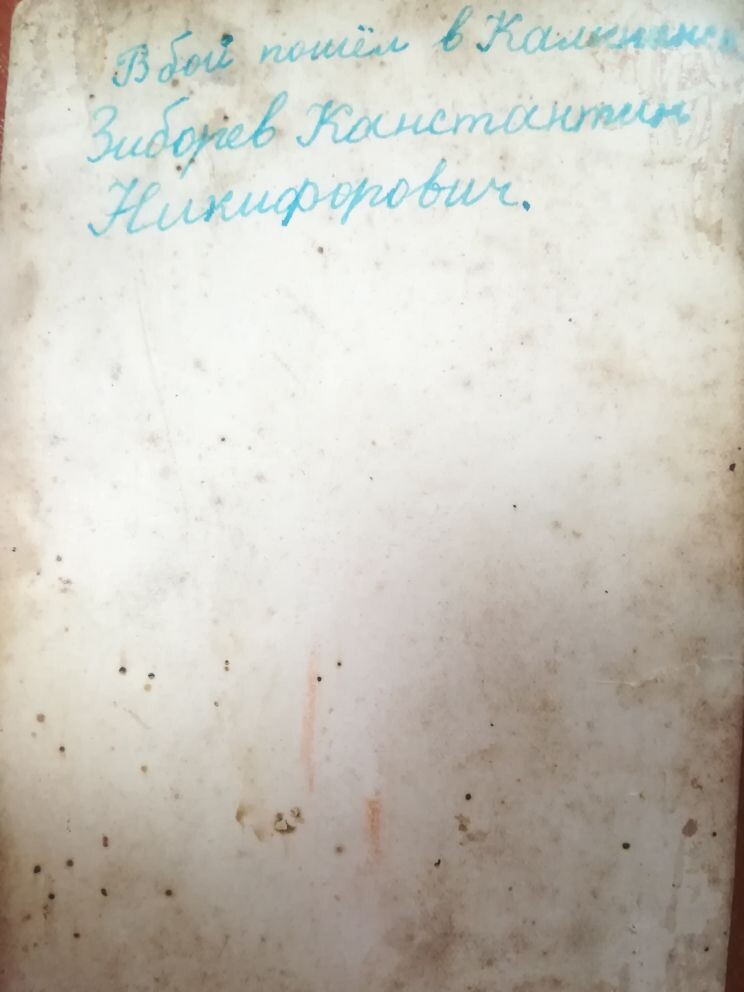 В бой пошёл в
Зиборев Канстантин
Никифорович.